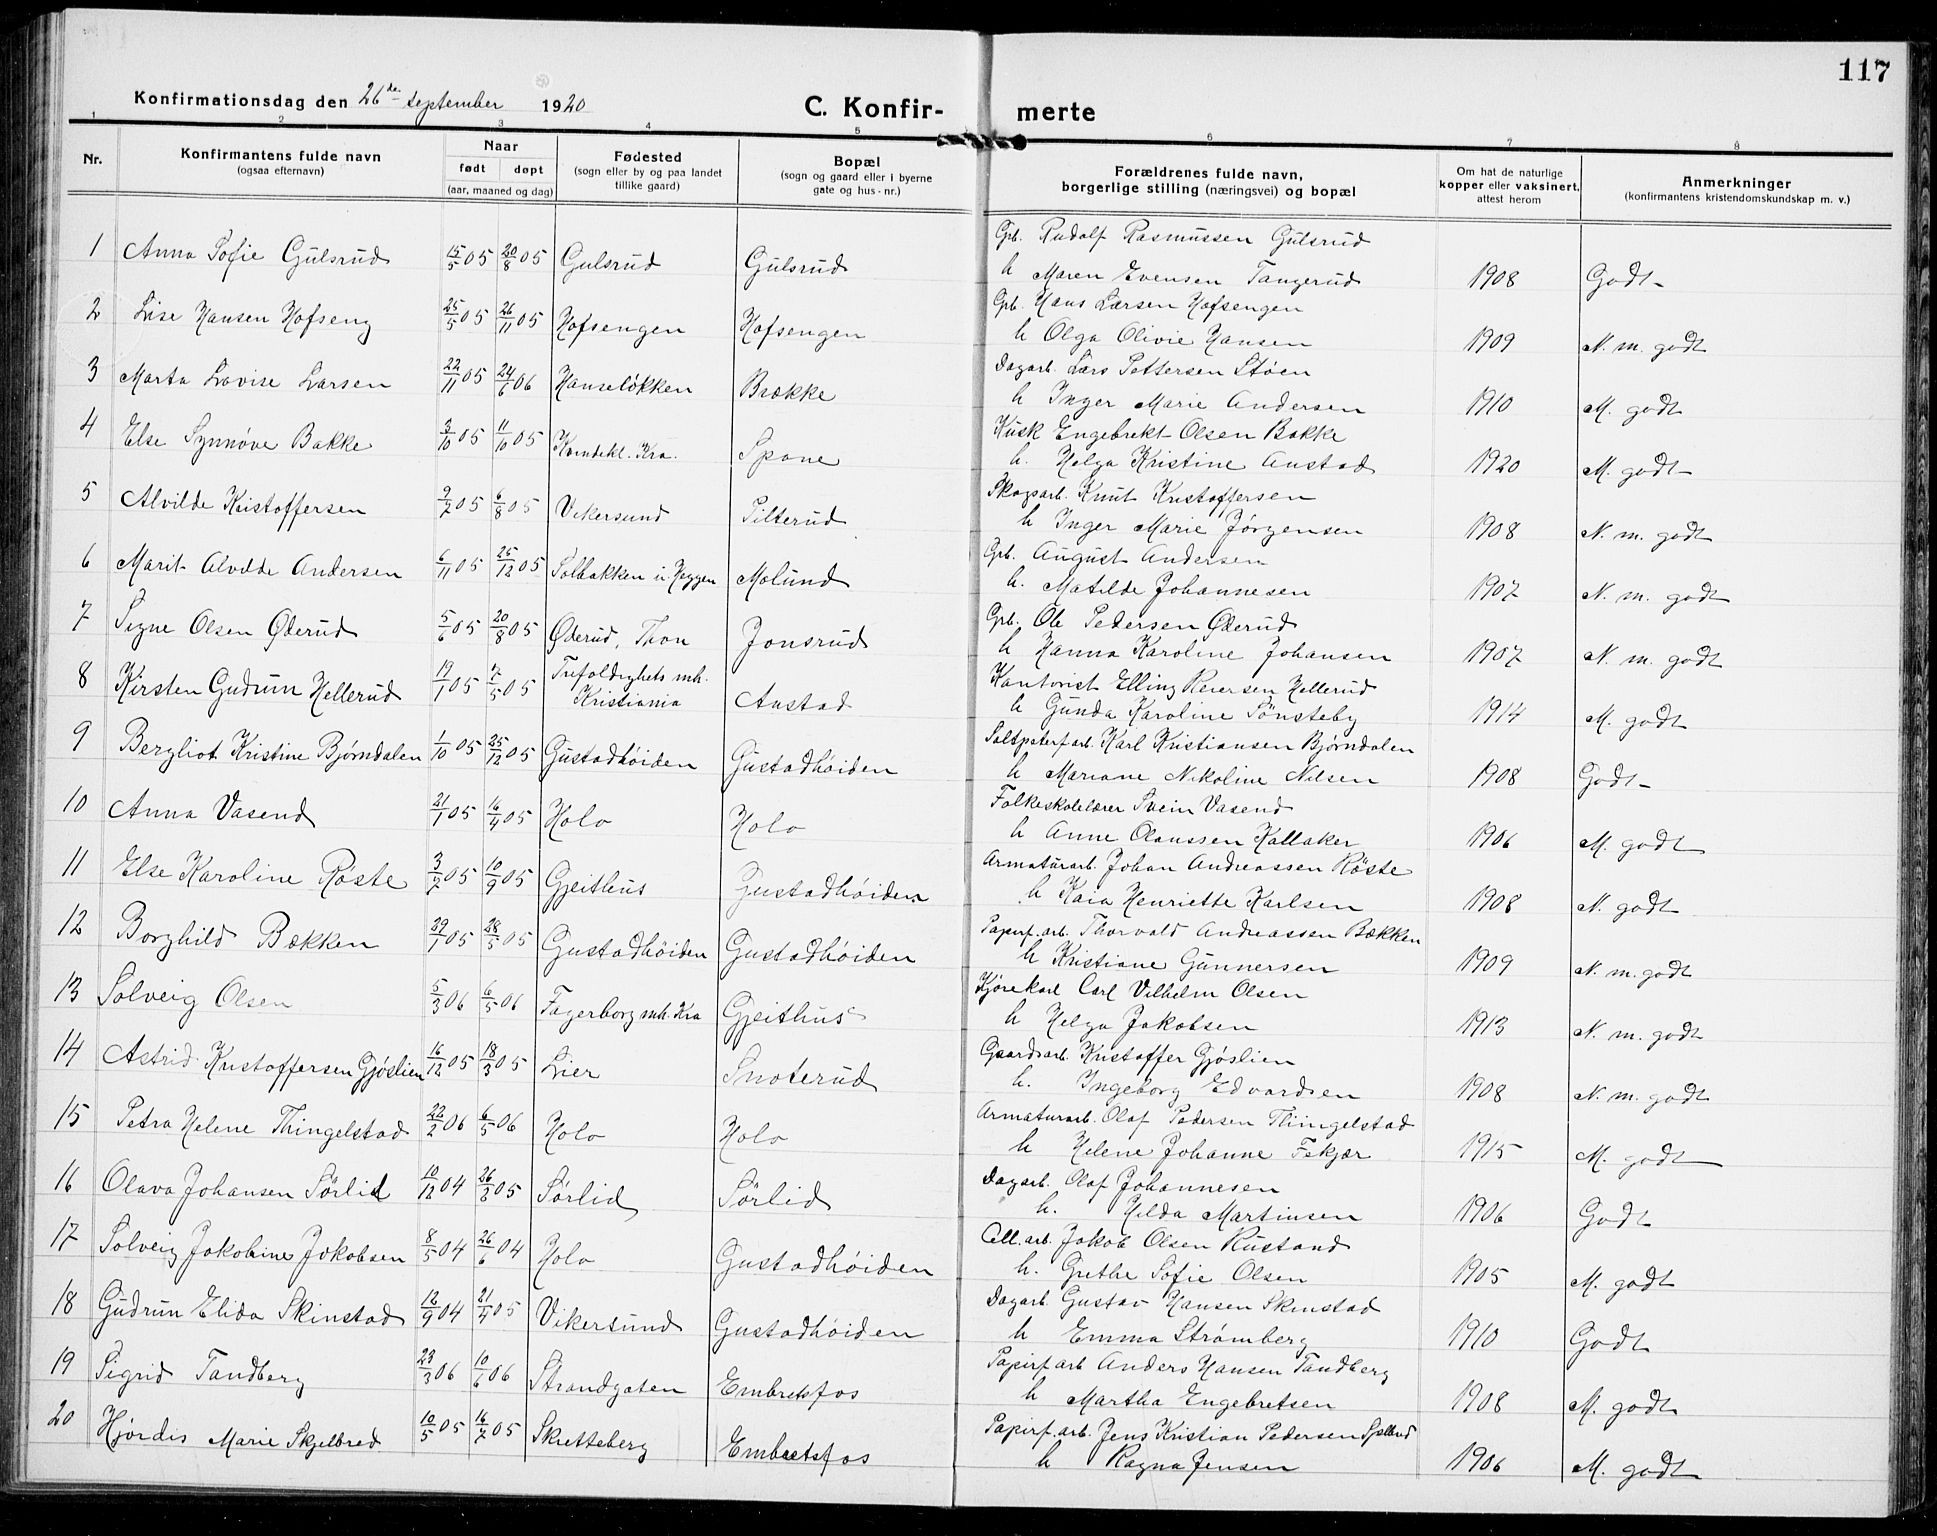 117
Konfirmationsdag den 26de september 1920
C. Konfir- merte
1 2 3 4 5 6 7 8
Nr.
Konfirmantens fulde navn
(ogsaa efternavn)
Naar
født døpt
(aar, maaned og dag)
Fødested
(sogn eller by og paa landet
tillike gaard)
Bopæl
(sogn og gaard eller i byerne
gate og hus-nr.)
Forældrenes fulde navn,
borgerlige stilling (næringsvei) og bopæl
Om hat de naturlige
kopper eller vaksinert,
attest herom
Anmerkninger
(konfirmantens kristendomskundskap m. v.)
Grb. Rudolf Rasmussen Gulsrud
1 Anna Sofie Gulsrud 15/5 05 20/8 05 Gulsrud Gulsrud h Maren Evensen Tangerud 1908 Godt
Grb. Hans Larsen Hofsengen
2 Lise Hansen Hofseng 25/5 05 26/11 05 Hofsengen Hofsengen h Olga Olivie Hansen 1909 N. m. godt
Dagarb. Lars Pettersen Støen
3 Marta Lovise Larsen 22/11 05 24/6 06 Hanseløkken Brække h Inger Marie Andersen 1910 M. godt
Kusk Engebrekt Olsen Bakke
4 Else Synnøve Bakke 3/10 05 11/10 05 Kvindekl. Kra. Spone h. Helga Kristine Anstad 1920 M. godt
Skogsarb. Knut Kristoffersen
5 Alvilde Kristoffersen 9/7 05 6/8 05 Vikersund Pilterud h Inger Marie Jørgensen 1908 N. m. godt
Grb. August Andersen
6 Marit Alvilde Andersen 6/11 05 25/12 05 Solbakken u. Heggen Molund h. Matilde Johannesen 1907 N. m. godt
Grb. Ole Pedersen Øderud
7 Signe Olsen Øderud 5/6 05 20/8 05 Øderud, Thon Jonsrud h Hanna Karoline Johansen 1907 N. m. godt
Kontorist Elling Reiersen Hellerud
8 Kirsten Gudrun Hellerud 19/1 05 7/5 05 Trefoldighets mh. Kristiania Anstad h Gunda Karoline Sønsteby 1914 M. godt
Saltpeterf.arb. Karl Kristiansen Bjørndalen
9 Bergliot Kristine Bjørndalen 1/10 05 25/12 05 Gustadhøiden Gustadhøiden h Mariane Nikoline Nilsen 1908 Godt
Folkeskolelærer Svein Vasend
10 Anna Vasend 21/1 05 16/4 05 Holo Holo h Anne Olaussen Kallaker 1906 M. godt
Armaturarb. Johan Andreassen Røste
11 Else Karoline Røste 3/7 05 10/9 05 Gjeithus Gustadhøiden h Kaia Henriette Karlsen 1908 N. godt
Papirf. arb. Thorvald Andreassen Bækken
12 Borghild Bækken 29/1 05 28/5 05 Gustadhöiden Gustadhøiden h Kristiane Gunnersen 1909 N. m. godt
Kjørekarl Carl Vilhelm Olsen
13 Solveig Olsen 5/3 06 6/5 06 Fagerborg mh. Kra Gjeithus h Helga Jakobsen 1913 N. m. godt
Gaardsarb. Kristoffer Gjøslien
14 Astrid Kristoffersen Gjøslien 16/12 05 18/3 05 Lier Snoterud h. Ingeborg Edvardsen 1908 N. m. godt
Armaturarb. Olaf Pedersen Thingelstad
15 Petra Helene Thingelstad 22/2 06 6/5 06 Holo Holo h Helene Johanne Fekjær 1915 M. godt
Dagarb. Olaf Johannesen
16 Olava Johansen Sørlid 10/12 04 26/3 05 Sørlid Sørlid h. Hilda Martinsen 1906 Godt
Cell. arb. Jakob Olsen Rustand
17 Solveig Jakobine Jakobsen 8/5 04 26/6 04 Holo Gustadhøiden h. Grethe Sofie Olsen 1905 M. godt
Dagarb. Gustav Hansen Skinstad
18 Gudrun Elida Skinstad 12/9 04 21/4 05 Vikersund Gustadhøiden h Emma Strømberg 1910 Godt
Papirf arb Anders Hansen Tandberg
19 Sigrid Tandberg 23/3 06 10/6 06 Strandgaten Embretsfos h Martha Engebretsen 1908 M. godt
Papirf. arb. Jens Kristian Pedersen
20 Hjørdis Marie Skjelbred 10/5 05 16/7 05 Skretteberg Embretsfos h Ragna Jensen 1906 M. godt